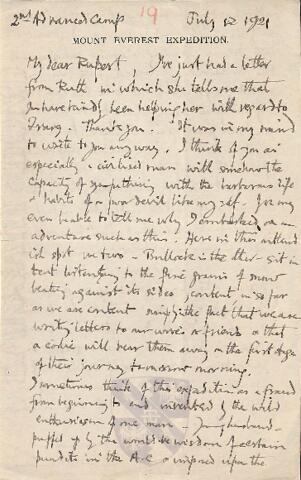 2nd Advanced Camp 19 July 12 1921
MOUNT EVEREST EXPEDITION.
My dear Rupert, I've just had a letter
from Ruth in which she tells me that
you have kindly been helping her with regard to
Thank you. It was in my mind
to write to you anyway. I think of you as
especially a civilised man with somehow the
capacity of sympathising with the barbarous life
& habits of a poor devil like myself. You may
even be able to tell me why I embarked on an
adventure such as this. Here in this
spot we two – Bullock is the other – sit in a
tent listening to the fine grains of snow
beating against its sides, content in so far
as we are content by the fact that we are
writing letters to our wives & friends & that
a coolie will bear them away on the first stage
of their journey tomorrow morning.
I sometimes think of this expedition as a fraud
from beginning to end invented by the wild
enthusiasm of one man – Younghusband –
puffed up by the would-be wisdom of certain
pundits in the A.C. & imposed upon the